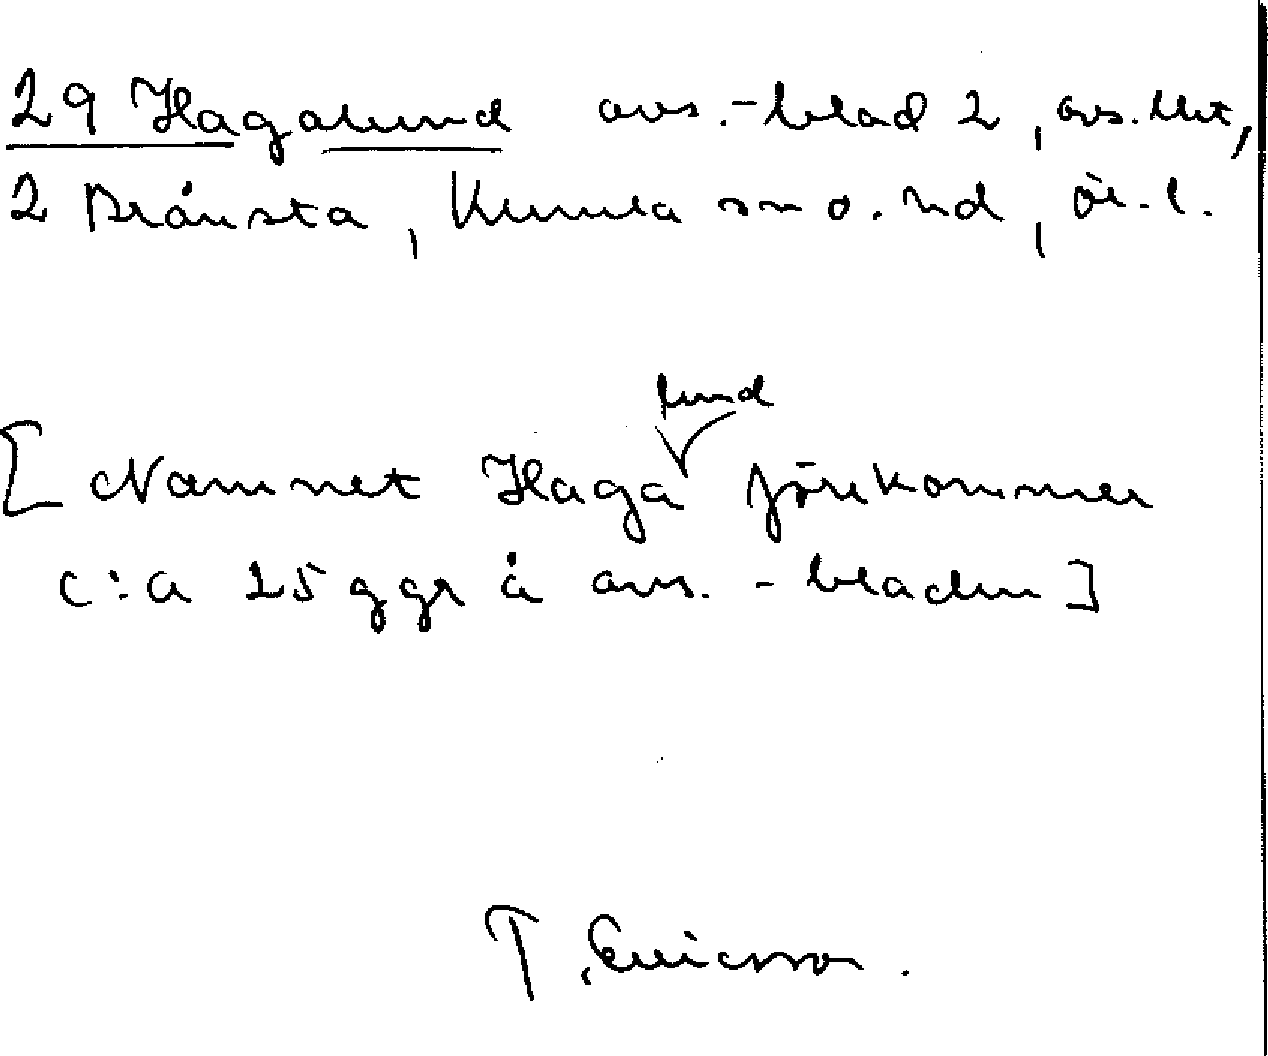 29 Hagalund avs.-blad 2, avs. till,
2 Brånsta, Kumla sn o. hd, Ör. l.
lund
[Namnet Haga förekommer
c:a 25 ggr å avs.-bladen]
T. Ericsson.